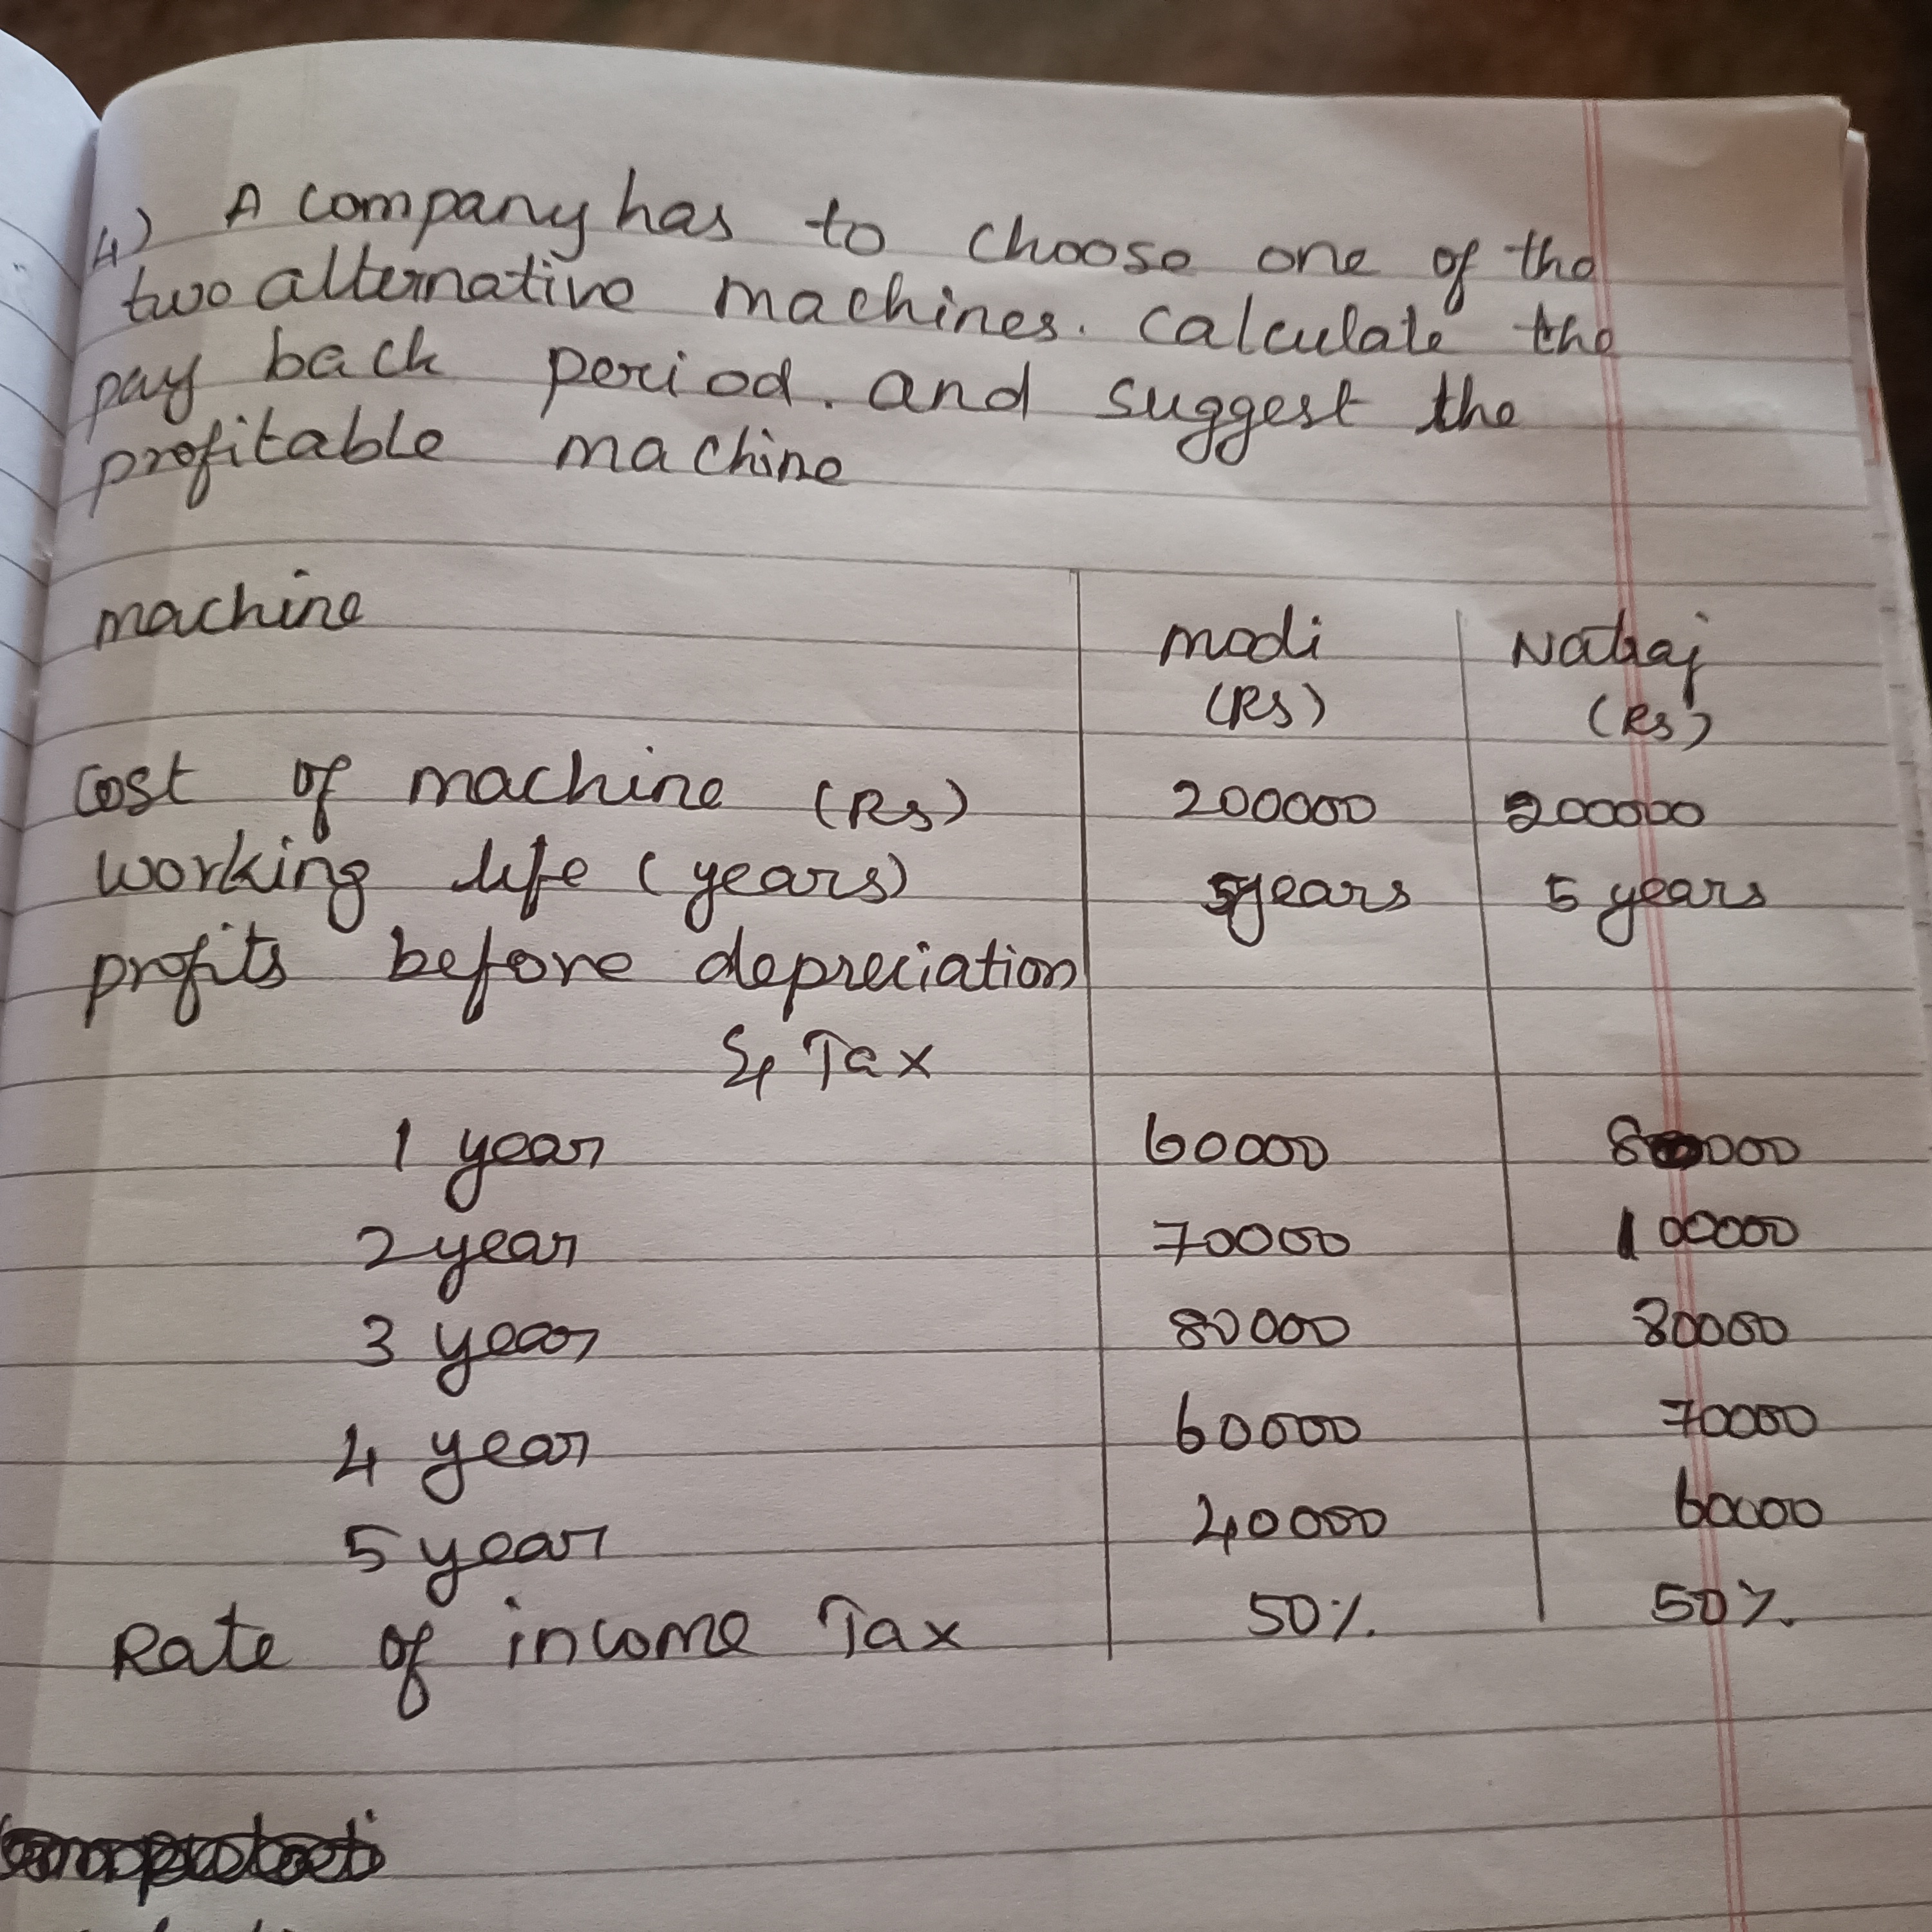 4) A company has to choose one of the
two alternative machines. Calculate the
pay back period. and suggest the
profitable machine
machine modi Nataj
(Rs) (Rs)
Cost of machine (Rs) 200000 200000
working life (years) 5years 5 years
profits before depreciation
& Tax
1 year 60000 80000
2 year 70000 100000
3 year 80000 80000
4 year 60000 70000
5 year 40000 60000
Rate of income Tax 50% 50%